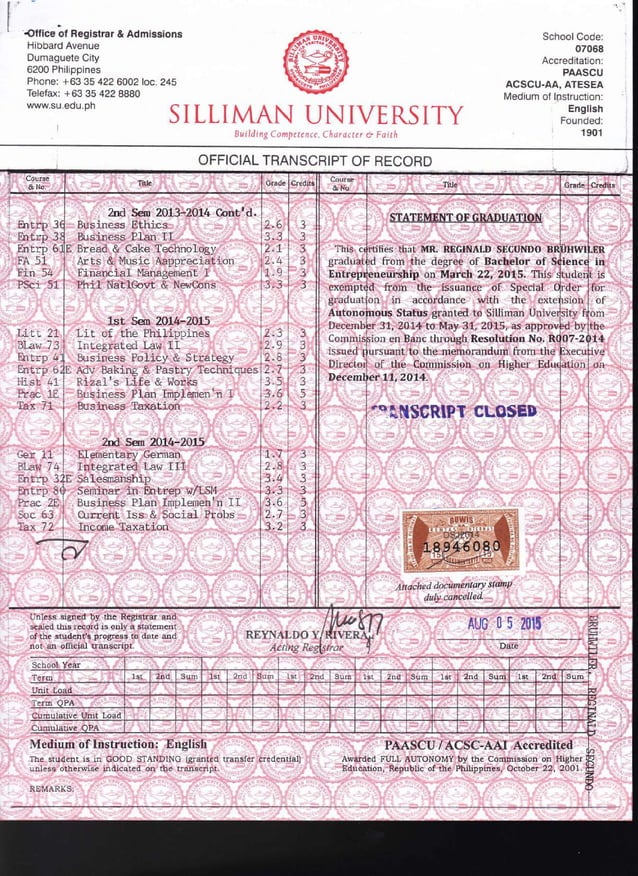 Office of Registrar & Admissions
Hibbard Avenue
Dumaguete City
6200 Philippines
Phone: +63 35 422 6002 loc. 245
Telefax: +63 35 422 8880
www.su.edu.ph
SILLIMAN UNIVERSITY
Building Competence, Character & Faith
School Code:
07068
Accreditation:
PAASCU
ACSCU-AA, ATESEA
Medium of Instruction:
English
Founded:
1901
OFFICIAL TRANSCRIPT OF RECORD
Course & No. Title Grade Credits Course & No. Title Grade Credits
2nd Sem 2013-2014 Cont'd.
Entrp 36 Business Ethics 2.6 3
Entrp 38 Business Plan II 3.3 3
Entrp 61E Bread & Cake Technology 2.1 3
FA 51 Arts & Music Aappreciation 2.4 3
Fin 54 Financial Management I 1.9 3
PSci 51 Phil NatlGovt & NewCons 3.3 3
1st Sem 2014-2015
Litt 21 Lit of the Philippines 2.3 3
BLaw 73 Integrated Law II 2.9 3
Entrp 41 Business Policy & Strategy 2.8 3
Entrp 62E Adv Baking & Pastry Techniques 2.7 3
Hist 41 Rizal's Life & Works 3.5 3
Prac 1E Business Plan Implemen'n I 3.6 5
Tax 71 Business Taxation 2.2 3
2nd Sem 2014-2015
Ger 11 Elementary German 1.7 3
BLaw 74 Integrated Law III 2.8 3
Entrp 32E Salesmanship 3.4 3
Entrp 80 Seminar in Entrep w/LSM 3.3 3
Prac 2E Business Plan Implemen'n II 3.6 5
Soc 63 Current Iss & Social Probs 2.7 3
Tax 72 Income Taxation 3.2 3
STATEMENT OF GRADUATION
This certifies that MR. REGINALD SECUNDO BRÜHWILER
graduated from the degree of Bachelor of Science in
Entrepreneurship on March 22, 2015. This student is
exempted from the issuance of Special Order for
graduation in accordance with the extension of
Autonomous Status granted to Silliman University from
December 31, 2014 to May 31, 2015, as approved by the
Commission en Banc through Resolution No. R007-2014
issued pursuant to the memorandum from the Executive
Director of the Commission on Higher Education on
December 11, 2014.
TRANSCRIPT CLOSED
BUWIS
18946080
Attached documentary stamp
duly cancelled.
Unless signed by the Registrar and
sealed this record is only a statement
of the student's progress to date and
not an official transcript.
REYNALDO Y. RIVERA
Acting Registrar
AUG 05 2015
Date
BRUHWILER, REGINALD SECUNDO
School Year
Term 1st 2nd Sum 1st 2nd Sum 1st 2nd Sum 1st 2nd Sum 1st 2nd Sum 1st 2nd Sum
Unit Load
Term QPA
Cumulative Unit Load
Cumulative QPA
Medium of Instruction: English
The student is in GOOD STANDING (granted transfer credential)
unless otherwise indicated on the transcript.
PAASCU / ACSC-AAI Accredited
Awarded FULL AUTONOMY by the Commission on Higher
Education, Republic of the Philippines, October 22, 2001.
REMARKS: